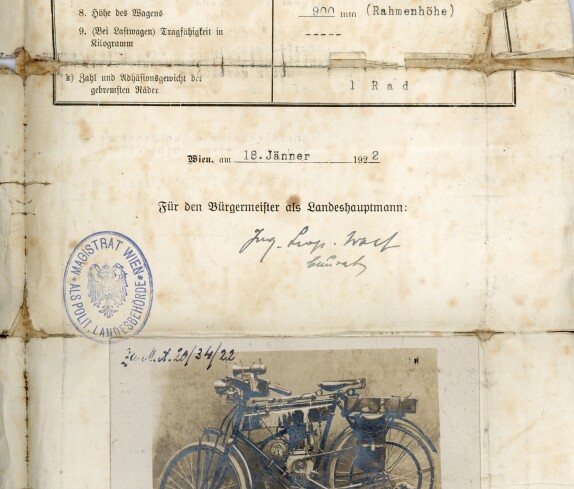 8. Höhe des Wagens 900 mm (Rahmenhöhe)
9. (Bei Lastwagen) Tragfähigkeit in
Kilogramm -----
k) Zahl und Adhäsionsgewicht der
gebremsten Räder 1 Rad
Wien, am 18. Jänner 1922
Für den Bürgermeister als Landeshauptmann:
Ing. Leop.
Baurat
MAGISTRAT WIEN
ALS POLIT. LANDESBEHÖRDE
A. 20/34/22